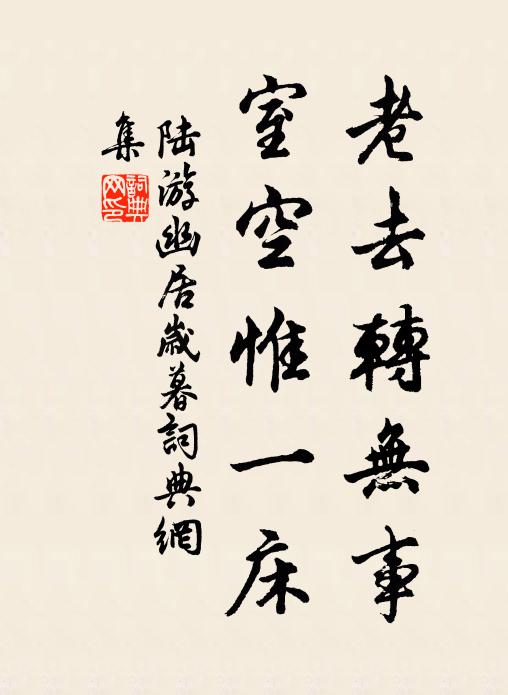 老去轉無事
室空惟一床
陸游幽居歲暮詞典網
集
詞典網印